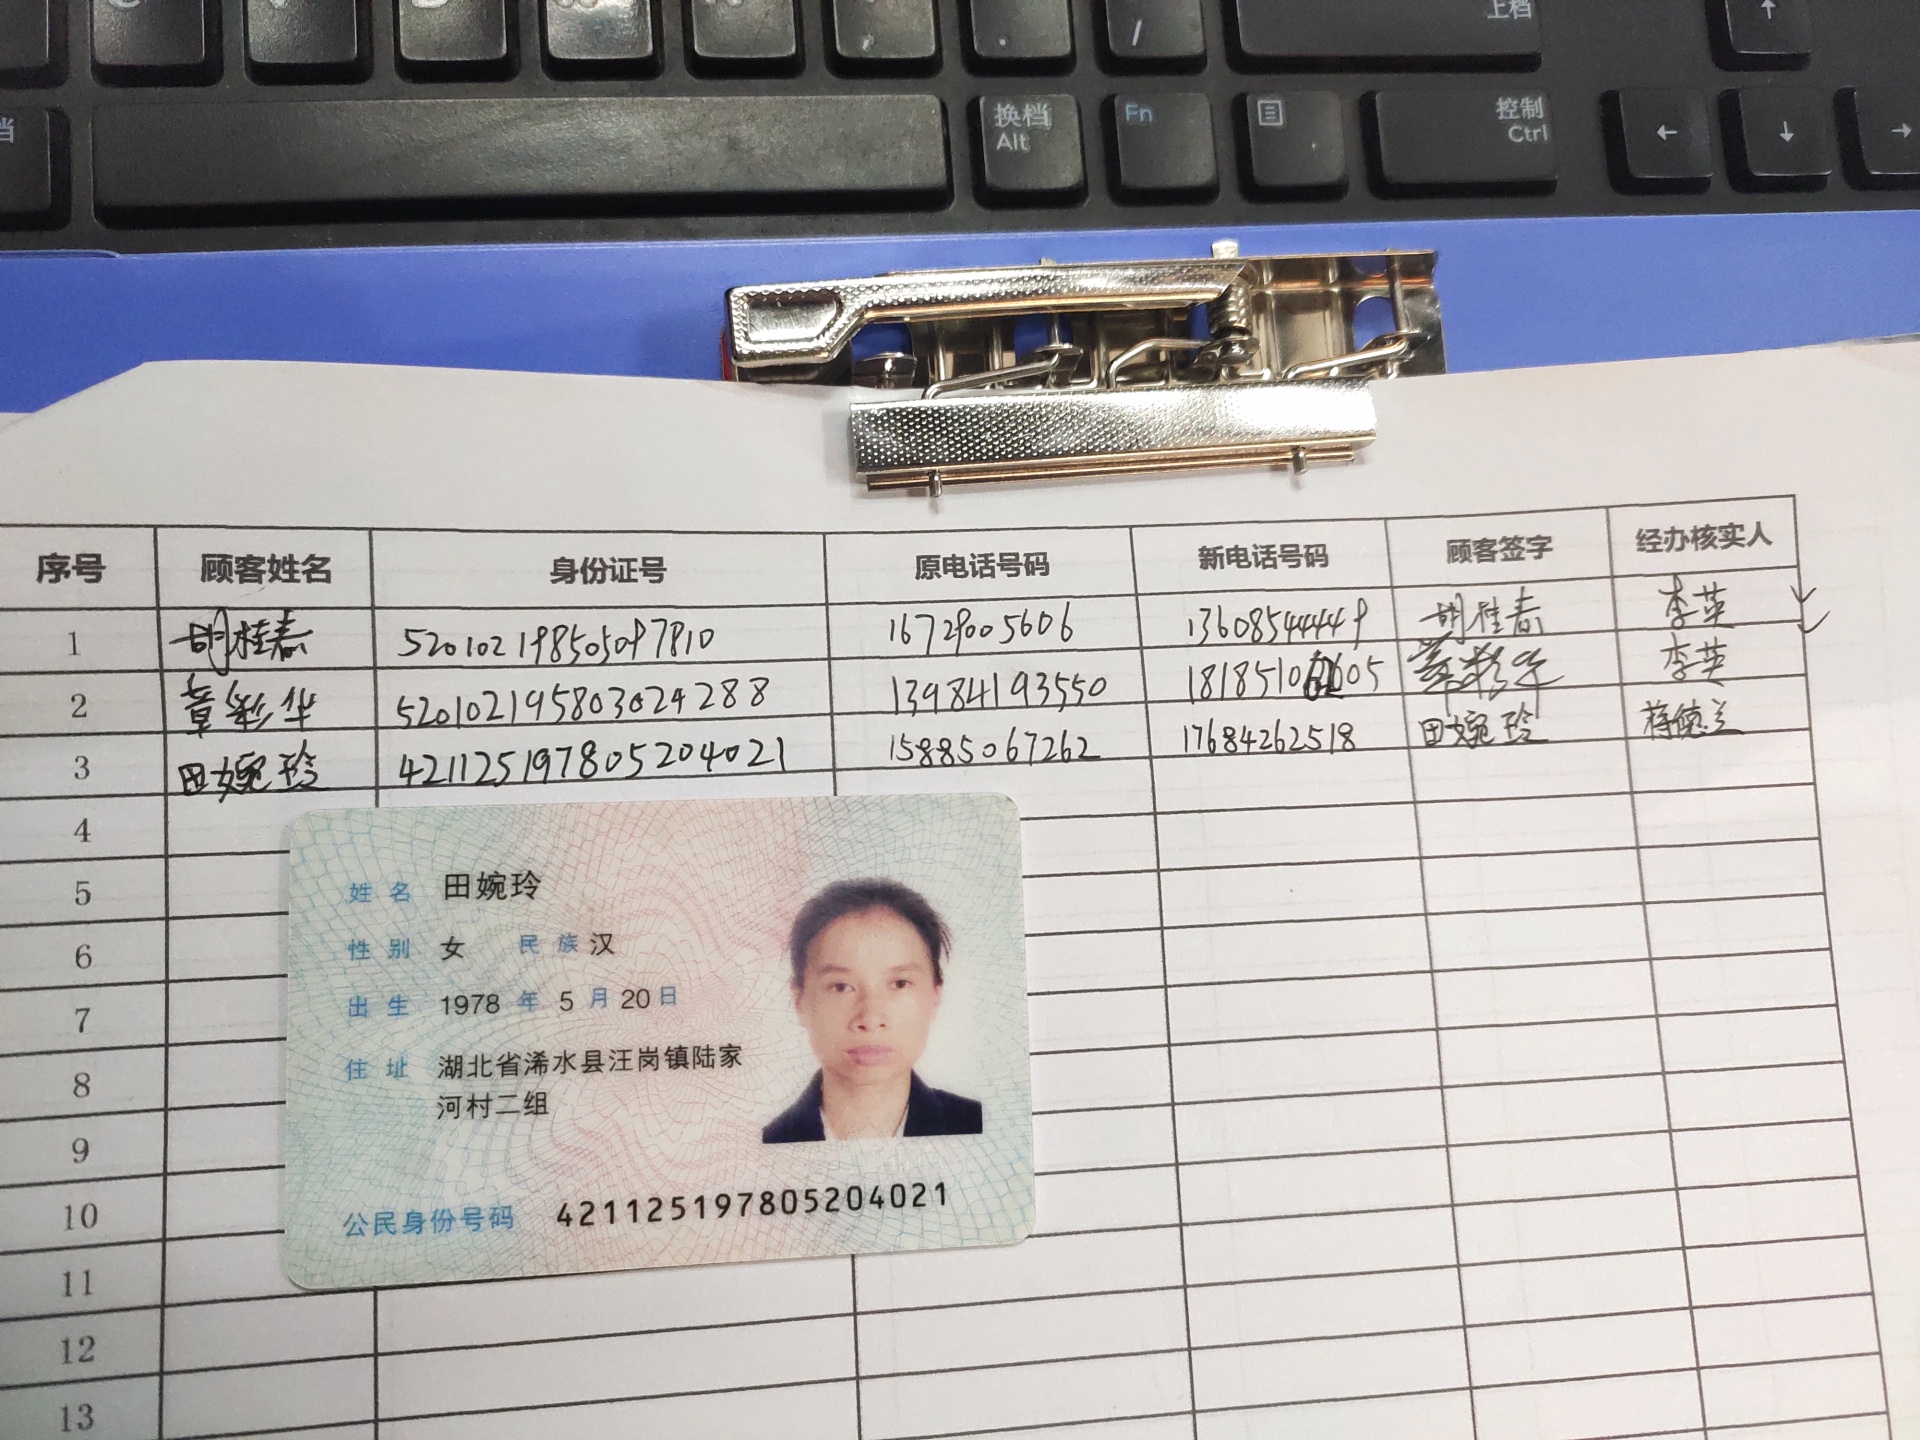 上档
↑
. /
换档
Alt
Fn
控制
Ctrl
← ↓ →
序号 顾客姓名 身份证号 原电话号码 新电话号码 顾客签字 经办核实人
1 胡桂春 520102198505097810 16729005606 13608544449 胡桂春 李英
2 章彩华 520102195803024288 13984193550 章彩华 李英
3 田婉玲 421125197805204021 15885067262 17684262518 田婉玲 蒋德兰
4
5
6
7
8
9
10
11
12
13
姓名 田婉玲
性别 女 民族 汉
出生 1978 年 5 月 20 日
住址 湖北省浠水县汪岗镇陆家
河村二组
公民身份号码 421125197805204021